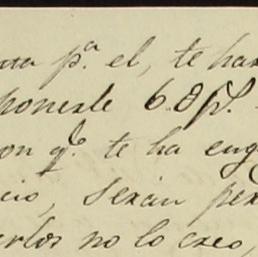 pª el, te ha
ponerle 6.8
on qᵉ te ha eng
cio, serán per
no lo creo,